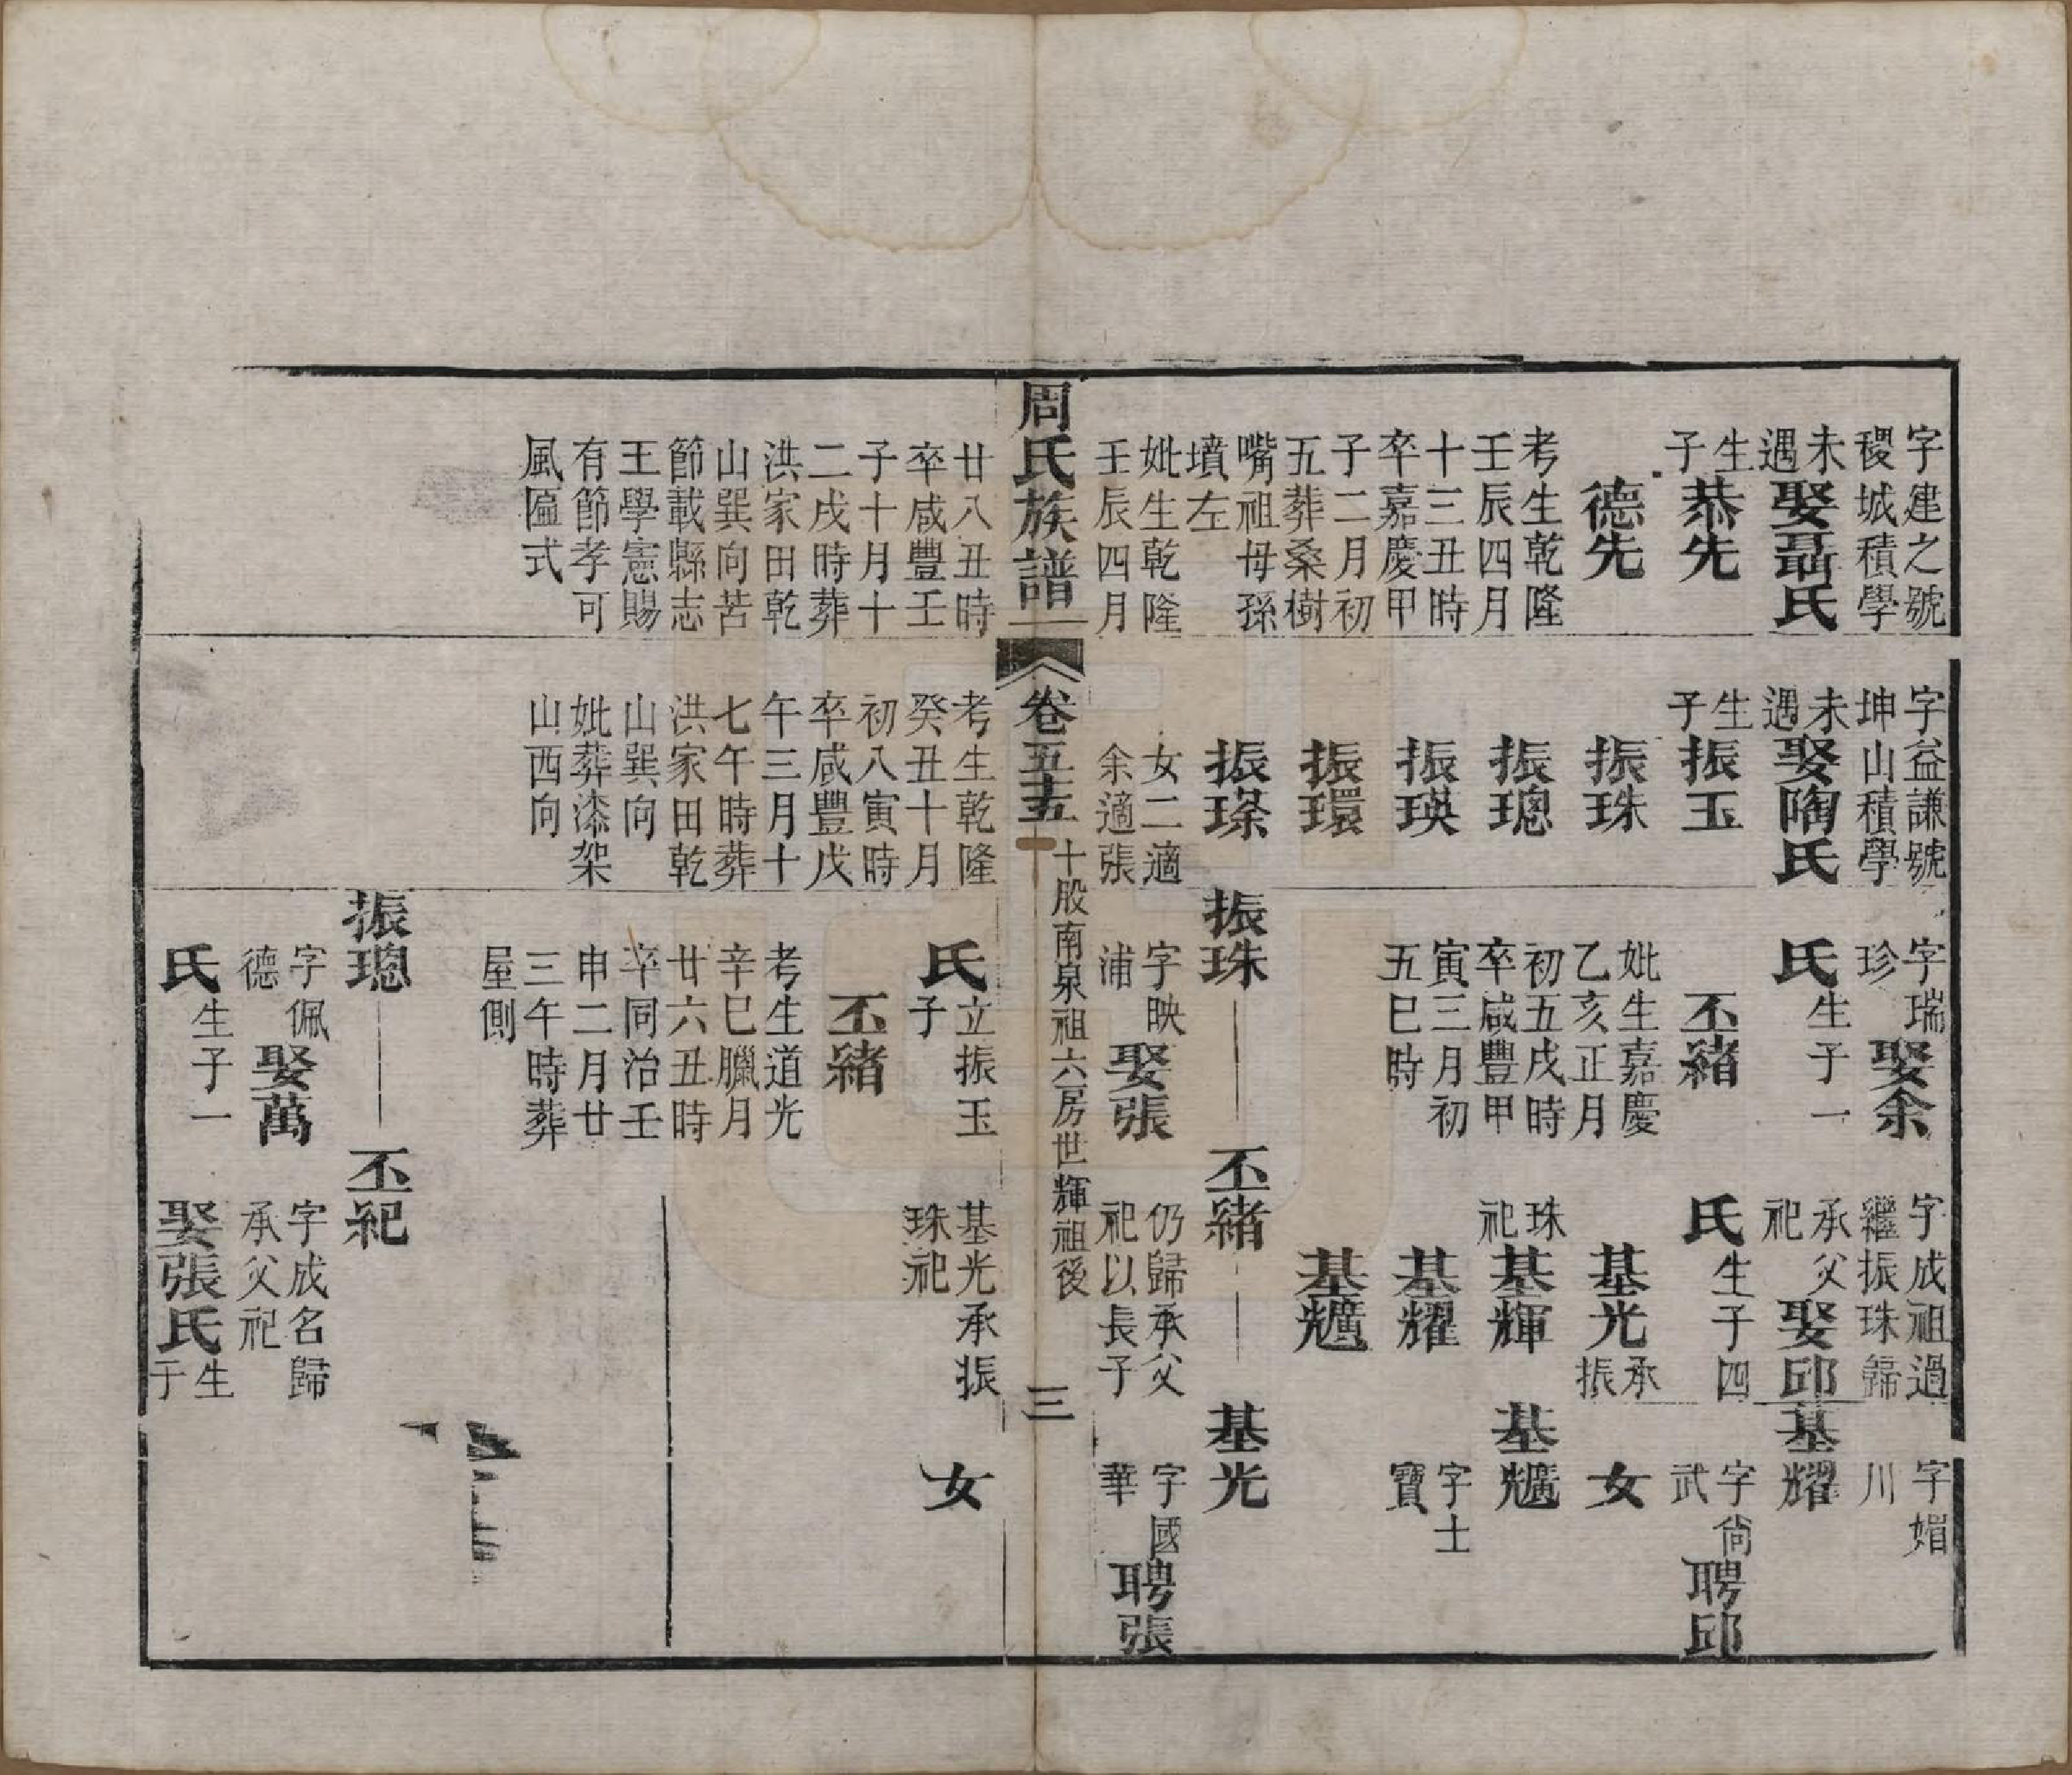 字建之號
稷城積學
未
遇
娶聶氏
生
子
恭先
德先
考生乾隆
壬辰四月
十三丑時
卒嘉慶甲
子二月初
五葬桑樹
嘴祖母孫
墳左
妣生乾隆
壬辰四月
字益謙號
坤山積學
未
遇
娶陶氏
生
子
振玉
振珠
振璁
振瑛
振環
振琛
女二適
余適張
字瑞
珍
娶余
氏
生子一
丕緒
妣生嘉慶
乙亥正月
初五戌時
卒咸豐甲
寅三月初
五巳時
振珠
字映
浦
娶張
字成祖過
繼振珠歸
承父
祀
娶邱
氏
生子四
基光
承
振
珠
祀
基輝
基耀
基爌
丕緒
仍歸承父
祀以長子
字媚
川
基耀
字尙
武
聘邱
女
基爌
字士
寶
基光
字國
華
聘張
周氏族譜
卷五十五
十股南泉祖六房世輝祖後
三
廿八丑時
卒咸豐壬
子十月十
二戌時葬
洪家田乾
山巽向苦
節載縣志
王學憲賜
有節孝可
風匾式
考生乾隆
癸丑十月
初八寅時
卒咸豐戊
午三月十
七午時葬
洪家田乾
山巽向
妣葬漆架
山西向
氏
立振玉
子
丕緒
考生道光
辛巳臘月
廿六丑時
卒同治壬
申二月廿
三午時葬
屋側
振璁
字佩
德
娶萬
氏
生子一
基光承振
珠祀
丕祀
字成名歸
承父祀
娶張氏
生
子
女